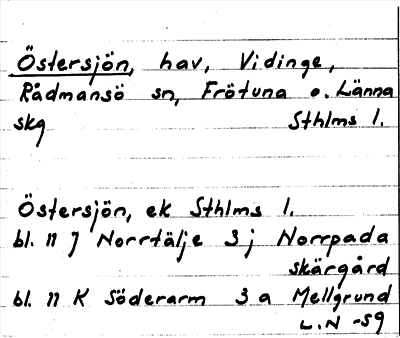 Östersjön, hav, Vidinge,
Rådmansö sn, Frötuna o. Länna
skg Sthlms l.
Östersjön, ek Sthlms l.
bl. 11 J Norrtälje 3 j Norrpada
skärgård
bl. 11 K Söderarm 3 a Mellgrund
L.N -59